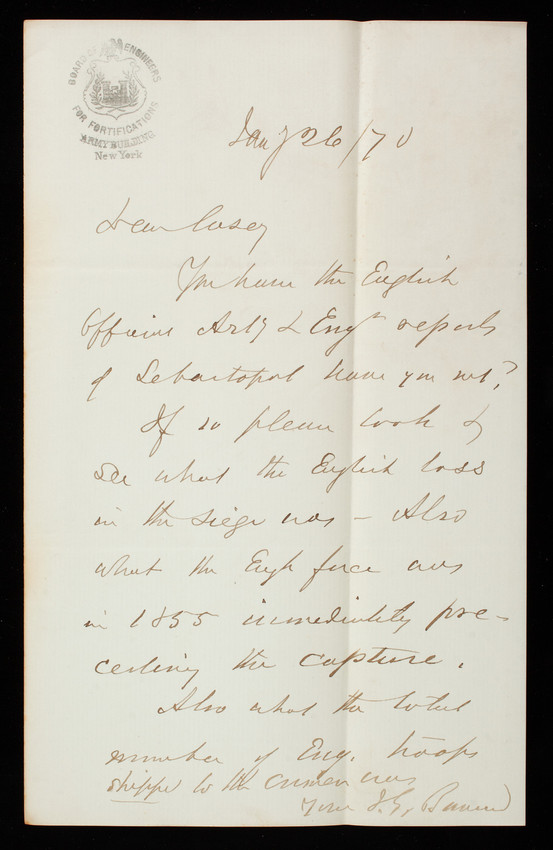 BOARD OF ENGINEERS
FOR FORTIFICATIONS
ARMY BUILDING
New York
Jany 26/70
Dear Casey
You have the English
Official Arty & Engr reports
of Sebastopol have you not?
If so please look &
see what the English loss
in the siege was – Also
what the Engh force was
in 1855 immediately pre-
ceding the capture.
Also what the total
number of Eng. troops
shipped to the Crimea was
Yours J.G. Barnard